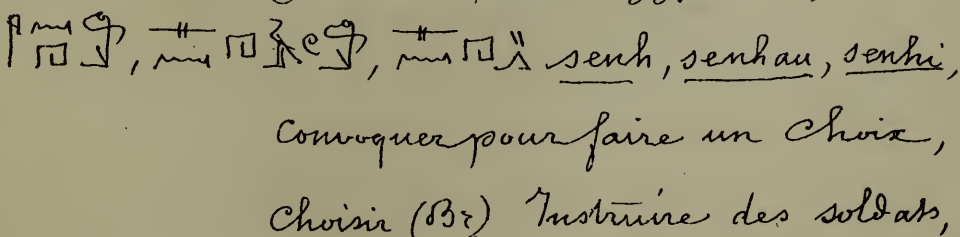 senh, senhau, senhi,
convoquer pour faire un choix,
choisir (Br) Instruire des soldats,